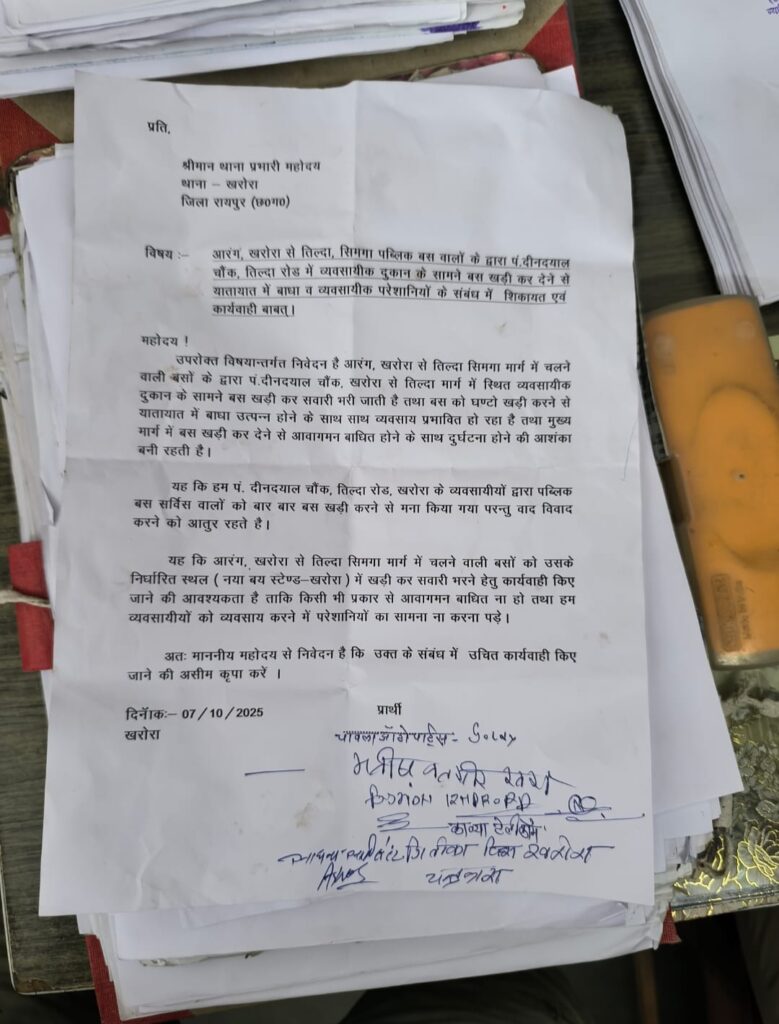 प्रति,
श्रीमान थाना प्रभारी महोदय
थाना – खरोरा
जिला रायपुर (छ०ग०)
विषय :- आरंग, खरोरा से तिल्दा, सिमगा पब्लिक बस वालों के द्वारा पं.दीनदयाल
चौंक, तिल्दा रोड में व्यवसायीक दुकान के सामने बस खड़ी कर देने से
यातायात में बाधा व व्यवसायीक परेशानियों के संबंध में शिकायत एवं
कार्यवाही बाबत्।
महोदय !
उपरोक्त विषयान्तर्गत निवेदन है आरंग, खरोरा से तिल्दा सिमगा मार्ग में चलने
वाली बसों के द्वारा पं.दीनदयाल चौंक, खरोरा से तिल्दा मार्ग में स्थित व्यवसायीक
दुकान के सामने बस खड़ी कर सवारी भरी जाती है तथा बस को घण्टो खड़ी करने से
यातायात में बाधा उत्पन्न होने के साथ साथ व्यवसाय प्रभावित हो रहा है तथा मुख्य
मार्ग में बस खड़ी कर देने से आवागमन बाधित होने के साथ दुर्घटना होने की आशंका
बनी रहती है।
यह कि हम पं. दीनदयाल चौंक, तिल्दा रोड, खरोरा के व्यवसायीयों द्वारा पब्लिक
बस सर्विस वालों को बार बार बस खड़ी करने से मना किया गया परन्तु वाद विवाद
करने को आतुर रहते है।
यह कि आरंग, खरोरा से तिल्दा सिमगा मार्ग में चलने वाली बसों को उसके
निर्धारित स्थल ( नया बय स्टेण्ड–खरोरा ) में खड़ी कर सवारी भरने हेतु कार्यवाही किए
जाने की आवश्यकता है ताकि किसी भी प्रकार से आवागमन बाधित ना हो तथा हम
व्यवसायीयों को व्यवसाय करने में परेशानियों का सामना ना करना पड़े।
अतः माननीय महोदय से निवेदन है कि उक्त के संबंध में उचित कार्यवाही किए
जाने की असीम कृपा करें ।
दिनॅाकः– 07/10/2025 प्रार्थी
खरोरा
चावला ऑटो पार्ट्स-
काव्या टेलीकॉम
खरोरा